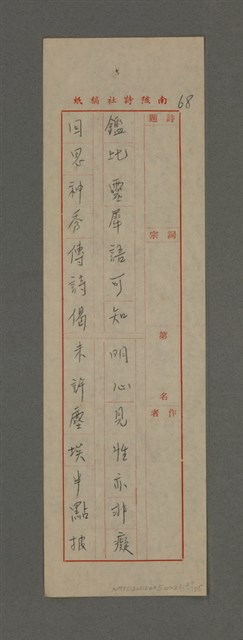 南陔詩社稿紙
68
詩題
詞宗
第 名
作者
鑑比靈犀語可知 明心見性亦非癡
因思神秀傳詩偈 未許塵埃半點披